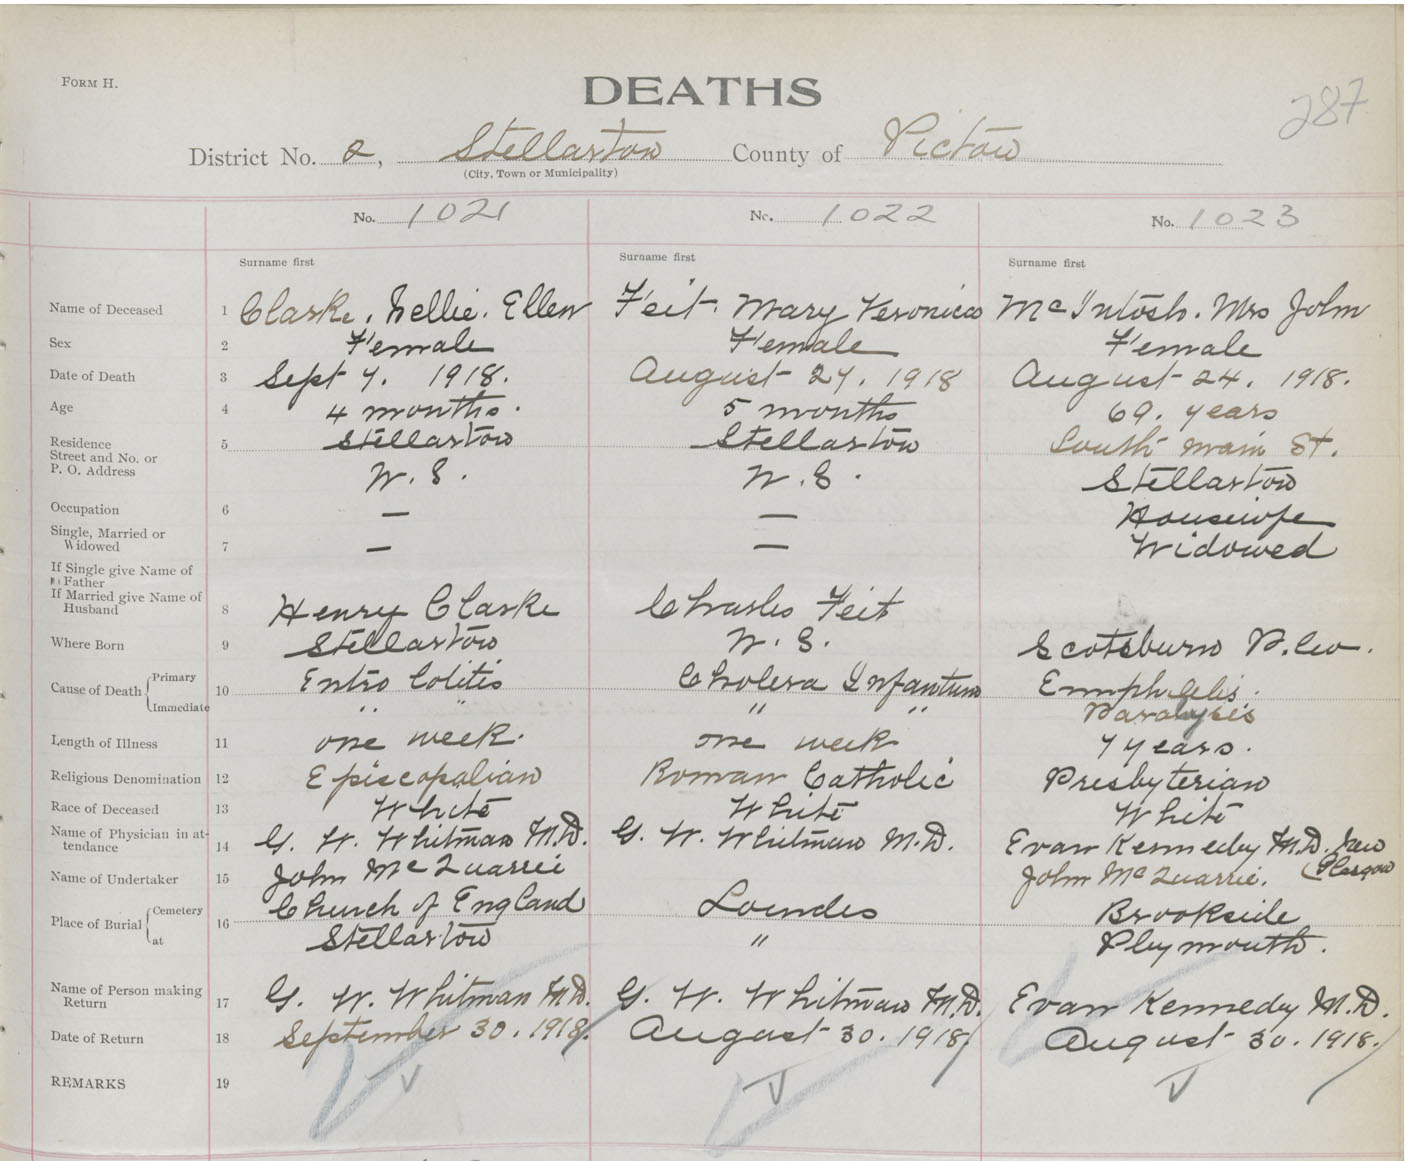 FORM H.
DEATHS
287
District No. 2, Stellarton County of Pictou
(City, Town or Municipality)
No. 1021 No. 1022 No. 1023
Surname first Surname first Surname first
Name of Deceased 1 Clarke, Nellie. Ellen Feit. Mary Veronica McIntosh. Mrs John
Sex 2 Female Female Female
Date of Death 3 Sept 7. 1918. August 27. 1918 August 24. 1918.
Age 4 4 months. 5 months 69. years
Residence Street and No. or P. O. Address 5 Stellarton Stellarton South Main St.
N. S. N. S. Stellarton
Occupation 6 — — Housewife
Single, Married or Widowed 7 — — Widowed
If Single give Name of Father
If Married give Name of Husband 8 Henry Clarke Charles Feit
Where Born 9 Stellarton N. S. Scotsburn P. Co.
Cause of Death Primary 10 Entro Colitis Cholera Infantum
Immediate " " " " Paralysis
Length of Illness 11 one week. one week 7 years.
Religious Denomination 12 Episcopalian Roman Catholic Presbyterian
Race of Deceased 13 White White White
Name of Physician in attendance 14 G. W. Whitman M.D. G. W. Whitman M.D. Evan Kennedy M.D. New Glasgow
Name of Undertaker 15 John McQuarrie John McQuarrie.
Place of Burial Cemetery 16 Church of England Lourdes Brookside
at Stellarton " Plymouth.
Name of Person making Return 17 G. W. Whitman M.D. G. W. Whitman M.D. Evan Kennedy M.D.
Date of Return 18 September 30. 1918. August 30. 1918 August 30. 1918.
REMARKS 19